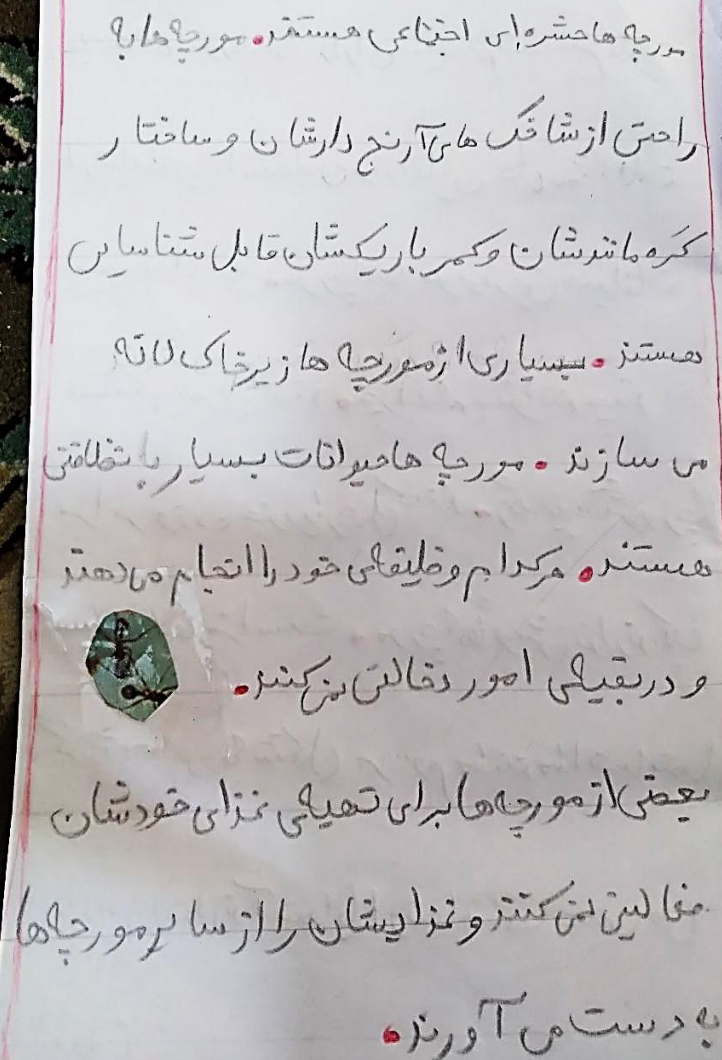 مورچه ها حشره ای اجتماعی هستند. مورچه ها به
راحتی از شاخک های آرنج دارشان و ساختار
گره مانندشان و کمر باریکشان قابل شناسایی
هستند. بسیاری از مورچه ها زیر خاک لانه
می سازند. مورچه ها حیوانات بسیار با نظافتی
هستند. هرکدام وظیفه‌ی خود را انجام می دهند
و در بقیه‌ی امور دخالتی نمی کنند.
بعضی از مورچه ها برای تهیه‌ی غذای خودشان
فعالیتی نمی کنند و غذایشان را از سایر مورچه ها
به دست می آورند.